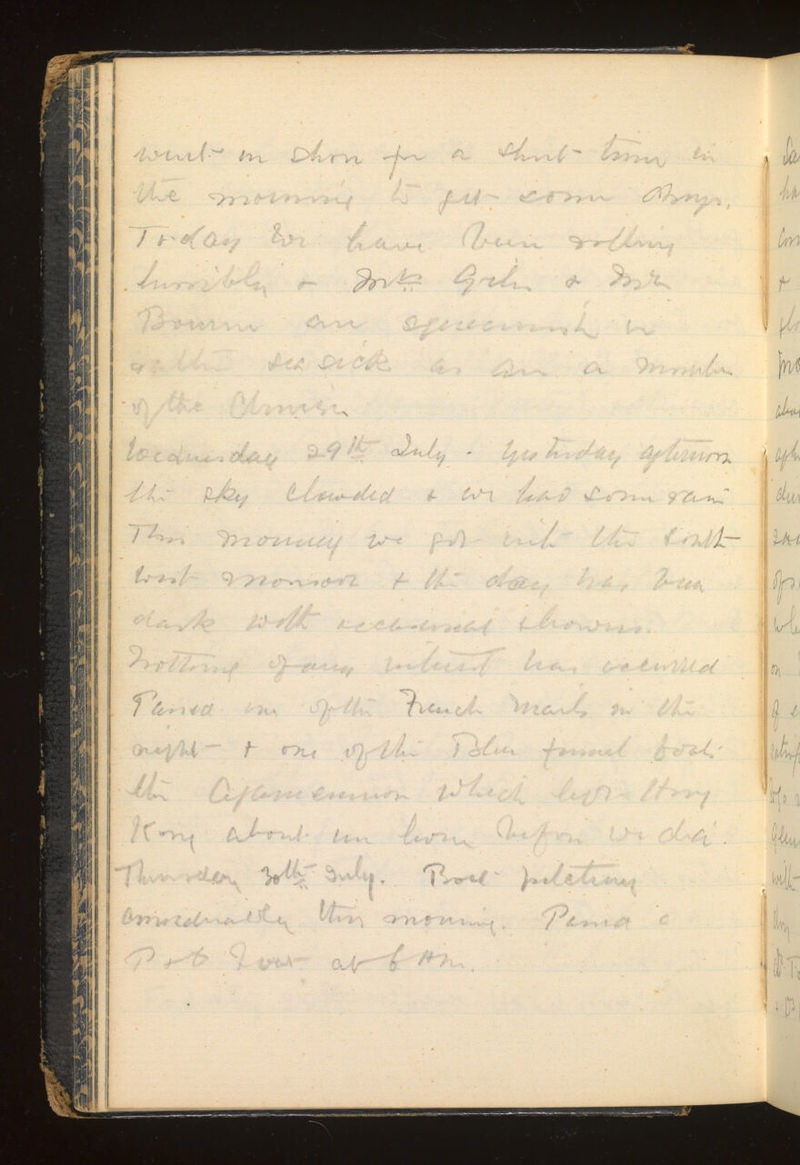 went on shore for a short time in
the morning to get some things.
Today we have been rolling
horribly & Mrs Giles & Mrs
Bourne are squeamish or
rather sea sick as are a number
of the Chinese
Wednesday 29th July. Yesterday afternoon
the sky clouded & we had some rain
This morning we got into the South
West monsoon & the day has been
dark with occasional showers.
Nothing of any interest has occurred
Passed one of the French mails in the
night & one of the Blue funnel boats
the Agamemnon which left Hong
Kong about an hour before we did.
Thursday 30th July. Boat pitching
considerably this morning. Passed a
P & O boat at 6 AM.